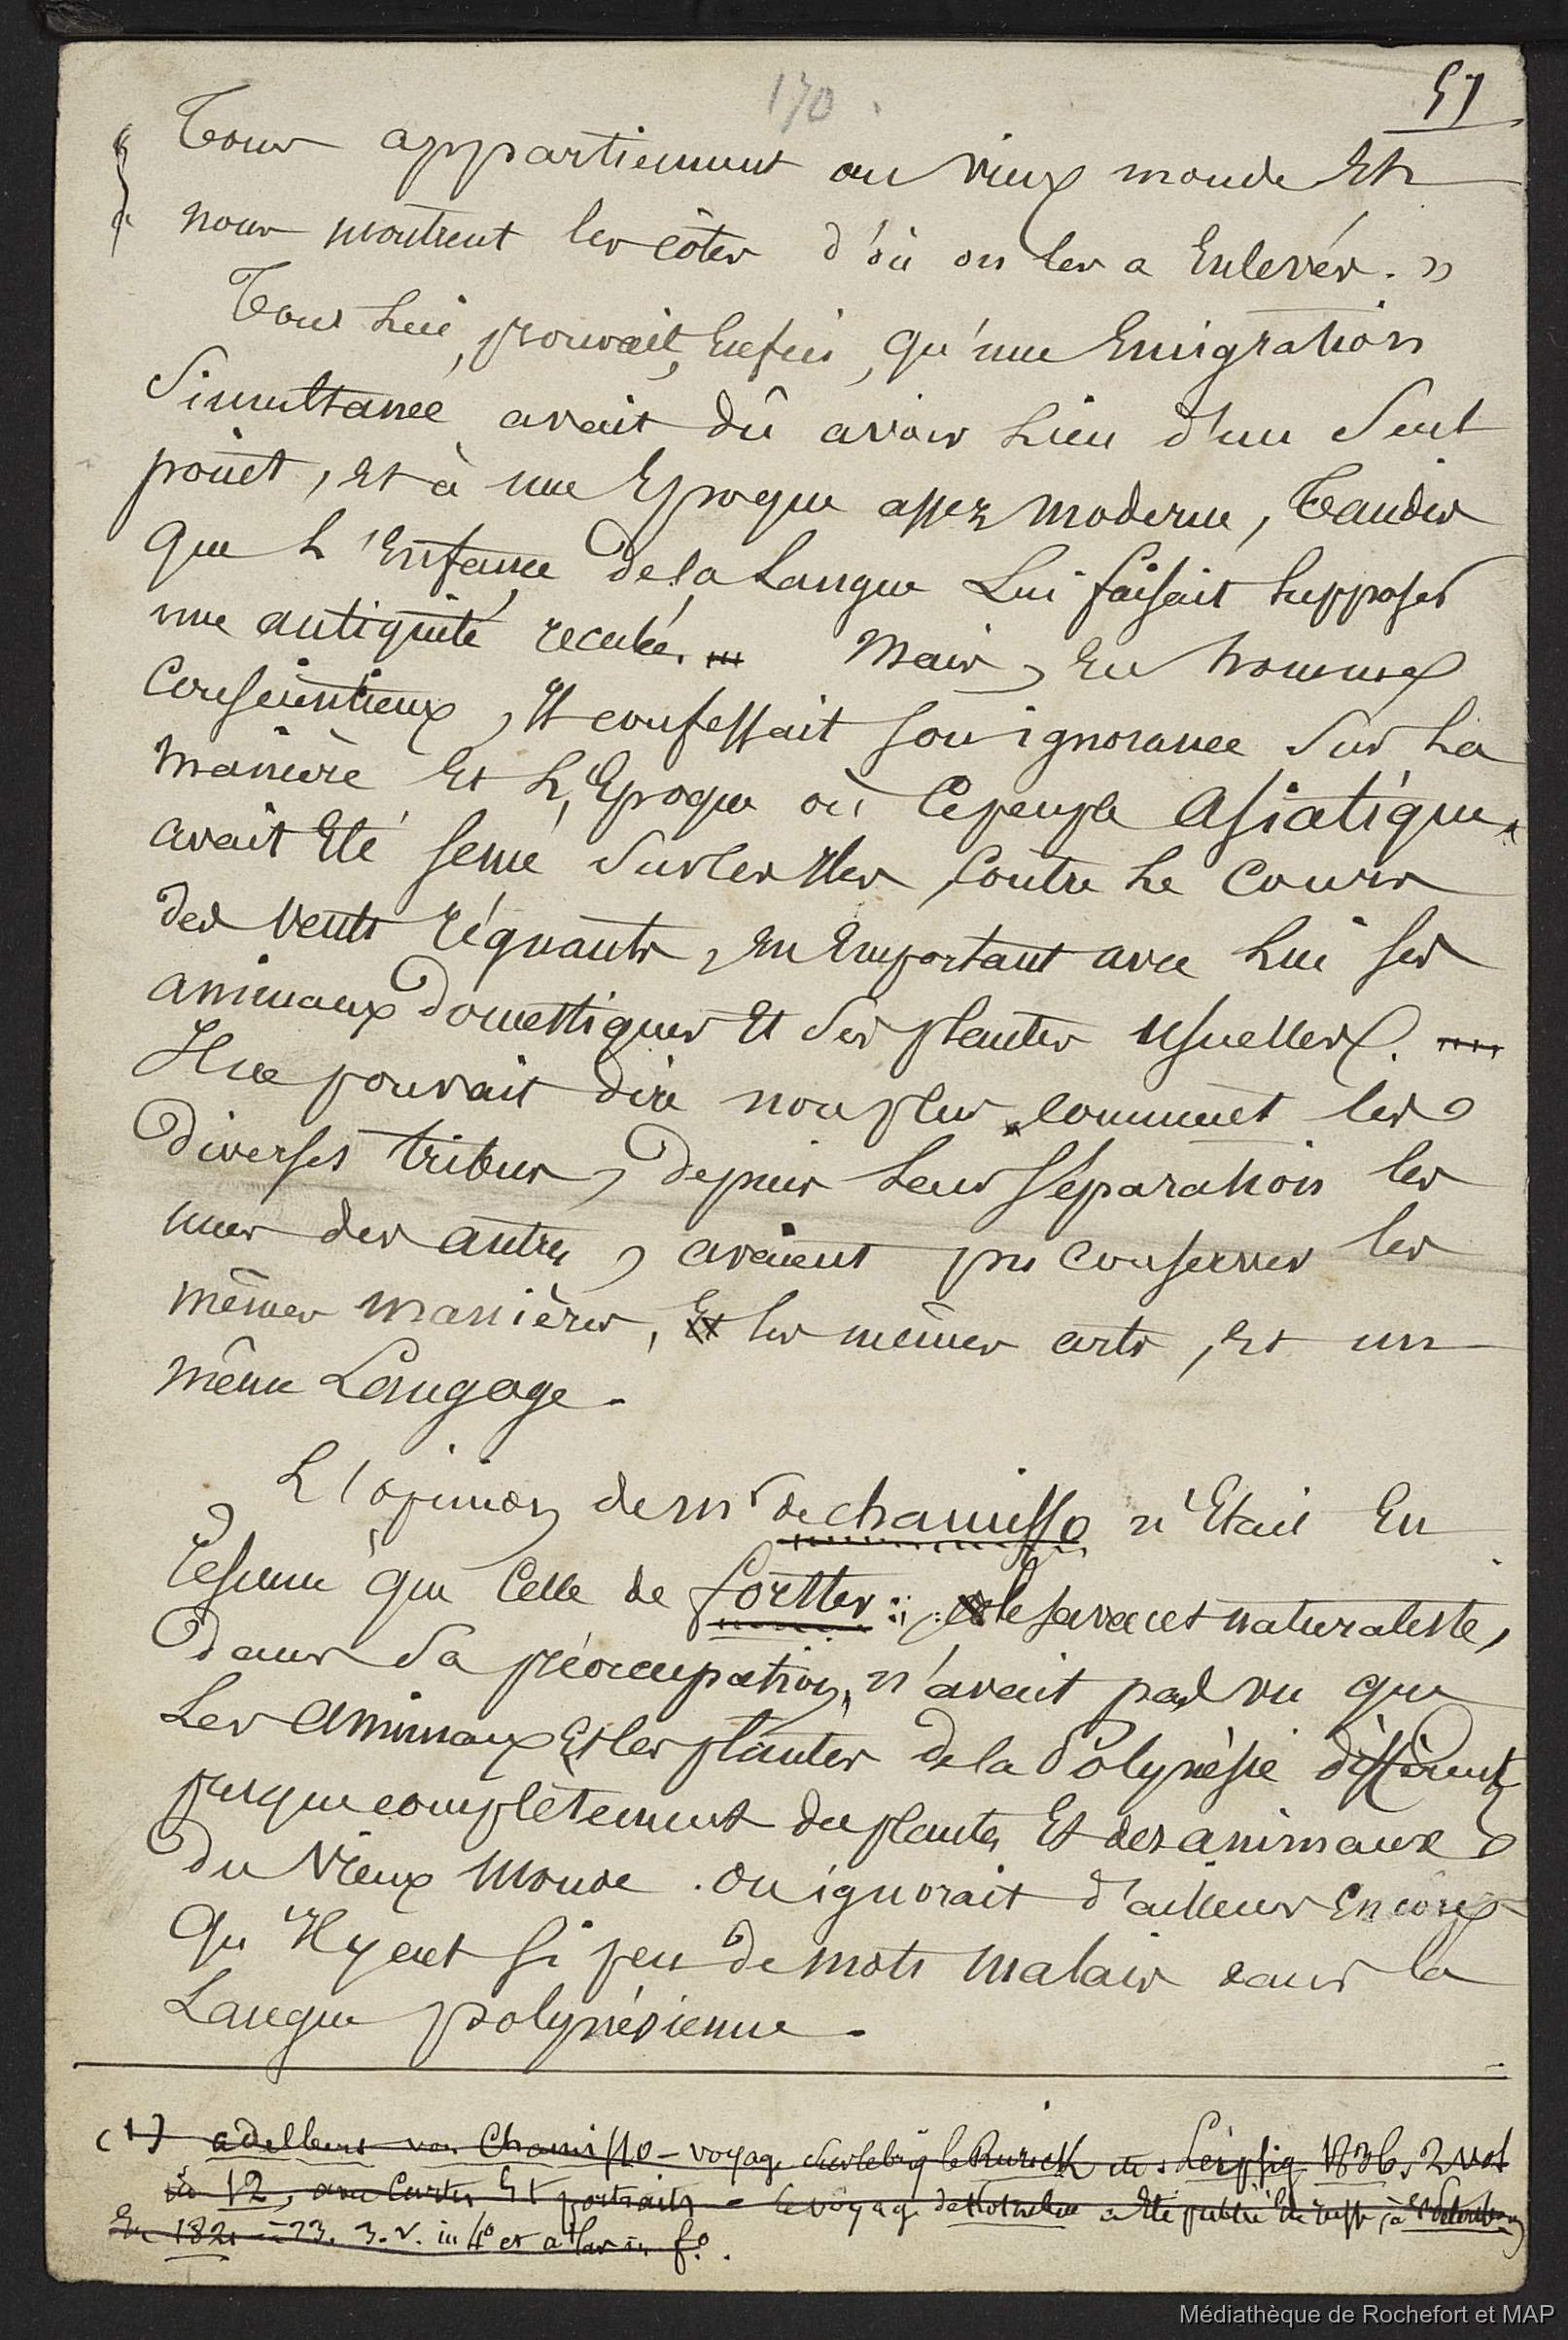 170.
57
Tous appartiennent au vieux monde Et
nous montrent les côtes d'où on les a Enlevés. »
Tout Lui, prouvait, Enfin, qu'une Emigration
Simultanée avait dû avoir Lieu d'un Seul
point, Et à une Epoque assez moderne, Tandis
que L'Enfance de la Langue Lui faisait Supposer
une antiquité reculée. Mais, En homme
Consciencieux, Il confessait son ignorance Sur La
manière Et L'Epoque où Ce peuple Asiatique
avait Eté Semé Sur les Iles, Contre Le Cours
des Vents régnants, En Emportant avec Lui ses
animaux Domestiques Et Ses plantes usuelles.
Il ne pouvait dire non plus comment les
Diverses tribus, Depuis Leur Séparation les
unes des autres, avaient pu conserver les
mêmes manières, Et les mêmes arts, Et un
même Langage.
L'opinion de Mr de Chamisso n'Etait En
résumé que Celle de Forster : le savant naturaliste,
Dans Sa préoccupation, n'avait pas vu que
Les animaux Et les plantes de la Polynésie diffèrent
presque complètement des plantes Et des animaux
Du Vieux Monde. On ignorait d'ailleurs Encore
Qu'Il y eut Si peu De mots Malais dans la
Langue polynésienne.
(1) adelbert von Chamisso – voyage Sur le brig le Rurick in. Leipsig 1836. 2 vol
in 12, avec Cartes Et portraits – Le voyage de Kotzebue a Eté publié En russe, à St Petersbourg
En 1821 – 23. 3. v. in 4° et atlas in f°.